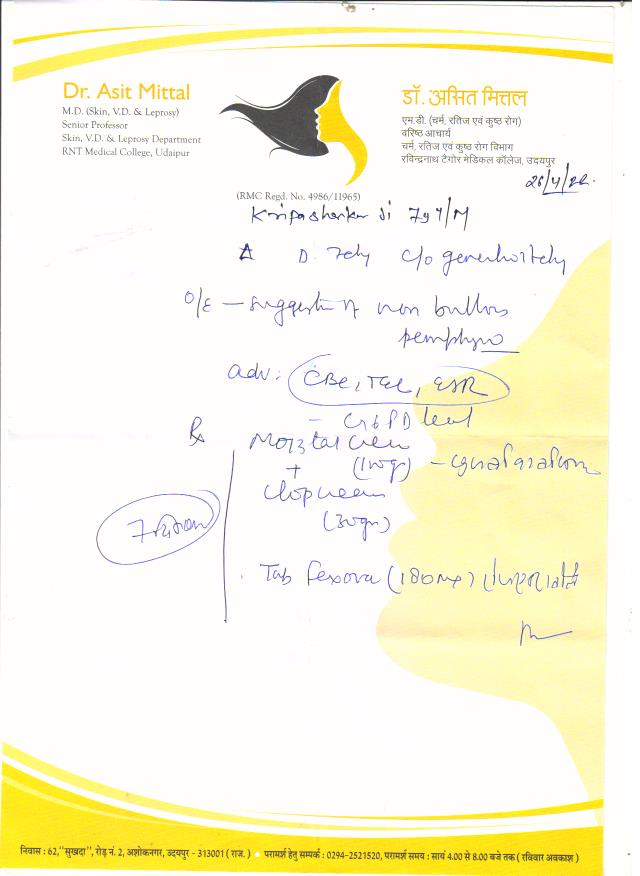 Dr. Asit Mittal
M.D. (Skin, V.D. & Leprosy)
Senior Professor
Skin, V.D. & Leprosy Department
RNT Medical College, Udaipur
डॉ. असित मित्तल
एम.डी. (चर्म, रतिज एवं कुष्ठ रोग)
वरिष्ठ आचार्य
चर्म, रतिज एवं कुष्ठ रोग विभाग
रविन्द्रनाथ टैगोर मेडिकल कॉलेज, उदयपुर
26/4/22.
(RMC Regd. No. 4986/11965)
Kripashankar Ji 79Y/M
Δ D. c/o
O/E - non bullous
adv: CBC, TLC, ESR
- G6PD level
℞
+
(30gm)
7 दिवस
Tab Fexova (180mg)
निवास : 62,"सुखदा", रोड़ नं. 2, अशोकनगर, उदयपुर - 313001 ( राज. ) • परामर्श हेतु सम्पर्क : 0294-2521520, परामर्श समय : सायं 4.00 से 8.00 बजे तक ( रविवार अवकाश )